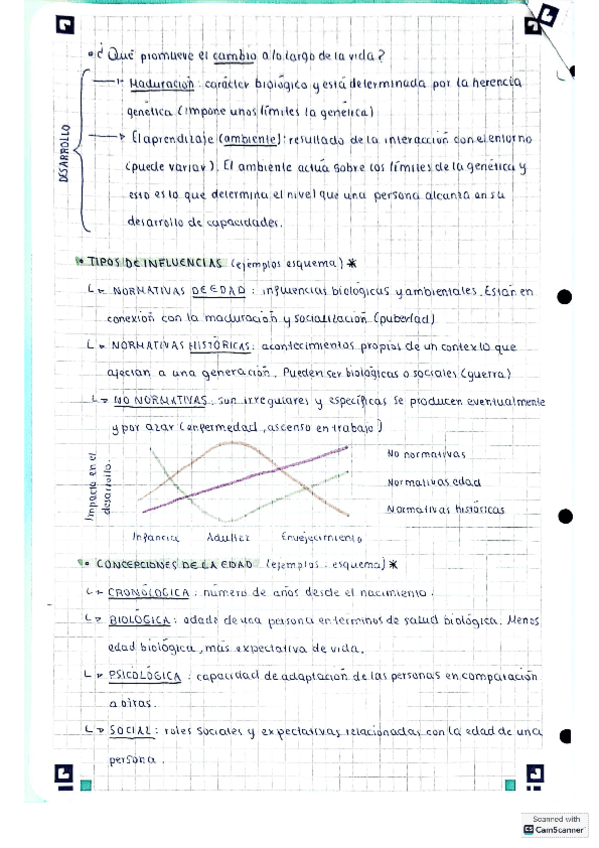 • ¿Qué promueve el cambio a lo largo de la vida?
DESARROLLO
Maduración: carácter biológico y está determinada por la herencia
genética (impone unos límites la genética)
El aprendizaje (ambiente): resultado de la interacción con el entorno
(puede variar). El ambiente actúa sobre los límites de la genética y
esto es lo que determina el nivel que una persona alcanza en su
desarrollo de capacidades.
• TIPOS DE INFLUENCIAS (ejemplos esquema) *
NORMATIVAS DE EDAD: influencias biológicas y ambientales. Están en
conexión con la maduración y socialización (pubertad)
NORMATIVAS HISTÓRICAS: acontecimientos propios de un contexto que
afectan a una generación. Pueden ser biológicas o sociales (guerra)
NO NORMATIVAS: sun irregulares y específicas se producen eventualmente
y por azar (enfermedad, ascenso en trabajo)
Impacto en el
desarrollo.
No normativas
Normativas edad
Normativas históricas
Infancia Adultez Envejecimiento
• CONCEPCIONES DE LA EDAD (ejemplos: esquema) *
CRONOLÓGICA: número de años desde el nacimiento.
BIOLÓGICA: edade de una persona en términos de salud biológica. Menos
edad biológica, más expectativa de vida.
PSICOLÓGICA: capacidad de adaptación de las personas en comparación
a otras.
SOCIAL: roles sociales y expectativas relacionadas con la edad de una
persona.
Scanned with
CS CamScanner